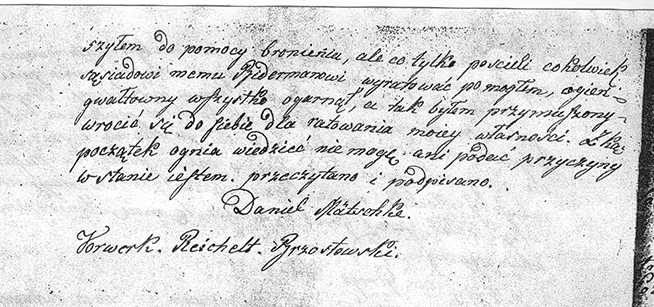 szyłem do pomocy bronienia, ale co tylko pościeli cokolwiek
sąsiadowi memu Bidermanowi wyratować pomogłem, ogień
gwałtowny wszystko ogarnął, a tak byłem przymuszony
wrocić się do siebie dla ratowania moiey własności. Zkąd
początek ognia wiedzieć nie mogę ani podać przyczyny
w stanie iestem. przeczytano i podpisano.
Daniel Mätschke.
Vorwerk. Reichelt. Brzostowski.